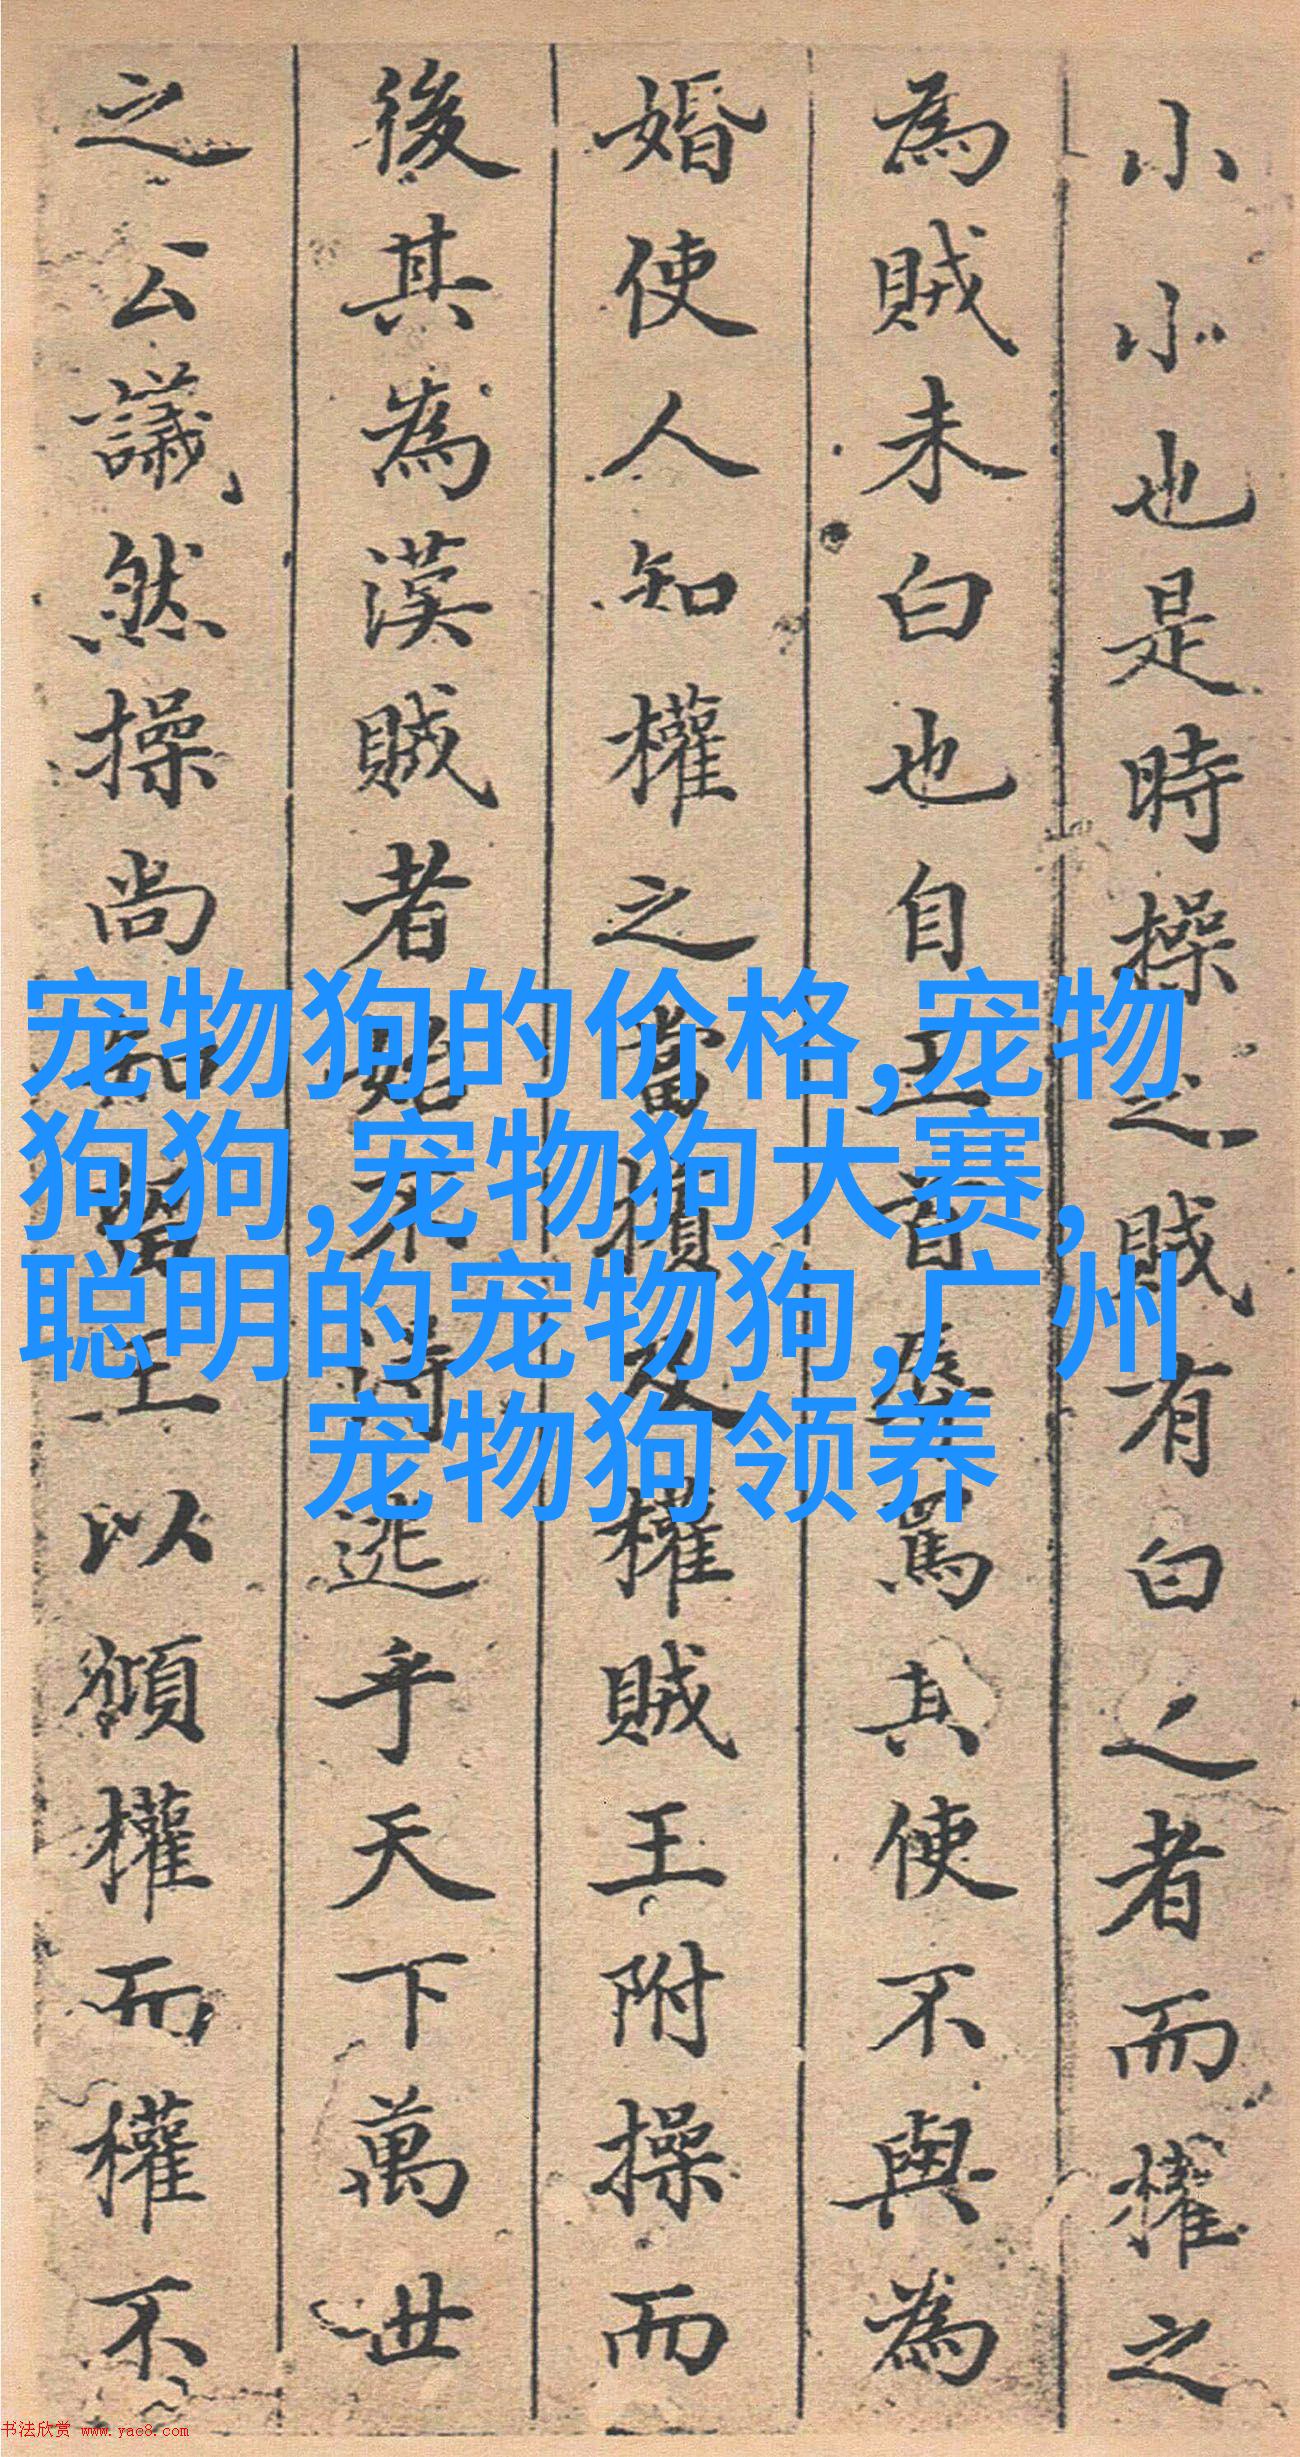 小小也是時操之賊有白之者而權之
為賊未白也自工首辱罵其使不與為
婚使人知權之當損及權賊王附操而
後其為漢賊者始不待逃乎天下萬世
之公議然操尚知畱王以頩權而權不
宠物狗的价格,宠物
狗狗,宠物狗大赛,
聪明的宠物狗,广州
宠物狗领养
书法欣赏 www.yac8.com